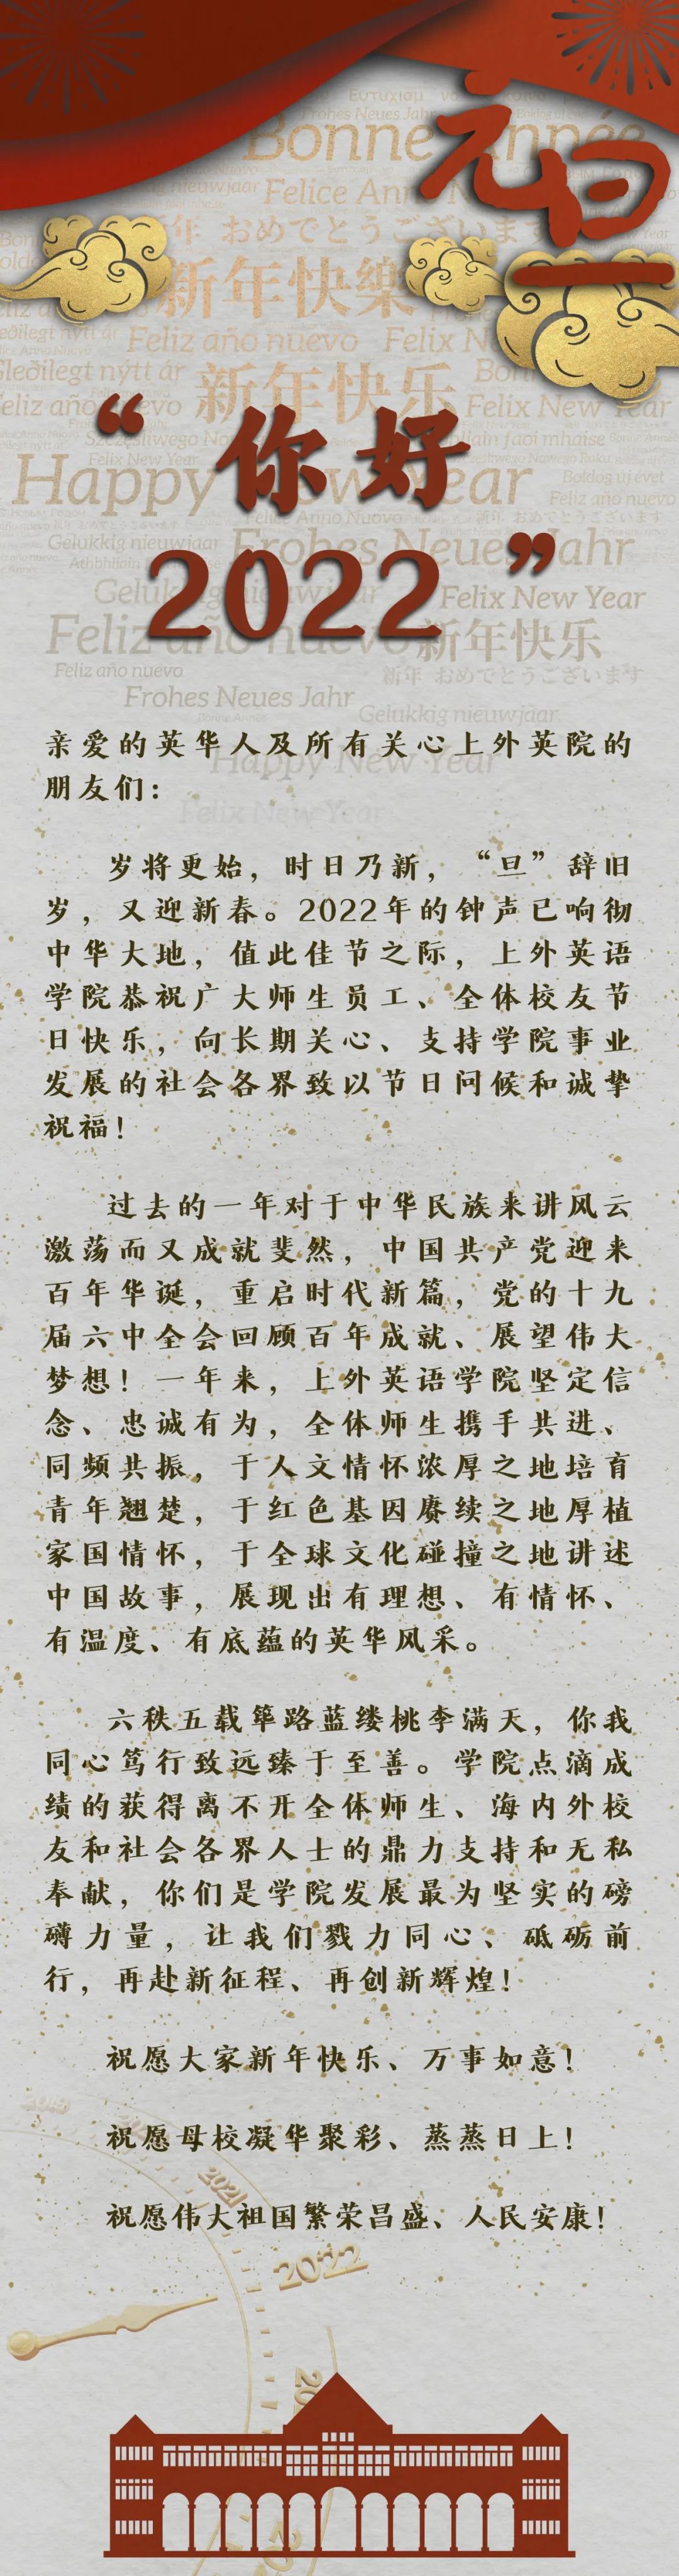 元旦
Bonne Année
Frohes Neues Jahr
Felice Anno N
新年 おめでとうございます
新年快樂
Feliz año nuevo Felix N
Gleðilegt nýtt ár 新年快乐 Bon
Feliz año nuevo Felix New Year
“你好
Felix New Year Boldog új évet
Happy New Year Feliz año nuevo
新年 おめでとうございます
Gelukkig nieuwjaar Frohes Neues Jahr
2022”
Gelukkig nieuwjaar Felix New Year
Feliz año nuevo 新年快乐
Feliz año nuevo 新年 おめでとうございます
Frohes Neues Jahr
Bonne Année Gelukkig nieuwjaar
亲爱的英华人及所有关心上外英院的
Happy New Year
朋友们：
Felix New Year
岁将更始，时日乃新，“旦”辞旧
岁，又迎新春。2022年的钟声已响彻
中华大地，值此佳节之际，上外英语
学院恭祝广大师生员工、全体校友节
日快乐，向长期关心、支持学院事业
发展的社会各界致以节日问候和诚挚
祝福！
过去的一年对于中华民族来讲风云
激荡而又成就斐然，中国共产党迎来
百年华诞，重启时代新篇，党的十九
届六中全会回顾百年成就、展望伟大
梦想！一年来，上外英语学院坚定信
念、忠诚有为，全体师生携手共进、
同频共振，于人文情怀浓厚之地培育
青年翘楚，于红色基因赓续之地厚植
家国情怀，于全球文化碰撞之地讲述
中国故事，展现出有理想、有情怀、
有温度、有底蕴的英华风采。
六秩五载筚路蓝缕桃李满天，你我
同心笃行致远臻于至善。学院点滴成
绩的获得离不开全体师生、海内外校
友和社会各界人士的鼎力支持和无私
奉献，你们是学院发展最为坚实的磅
礴力量，让我们戮力同心、砥砺前
行，再赴新征程、再创新辉煌！
祝愿大家新年快乐、万事如意！
祝愿母校凝华聚彩、蒸蒸日上！
2021
祝愿伟大祖国繁荣昌盛、人民安康！
2022